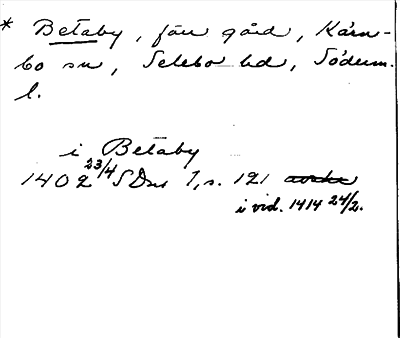 * Betaby, förr gård, Kärn-
bo sn, Selebo hd, Söderm.
l.
i Betaby
1402 23/4 SDns 1, s. 121
i vid. 1414 24/2.